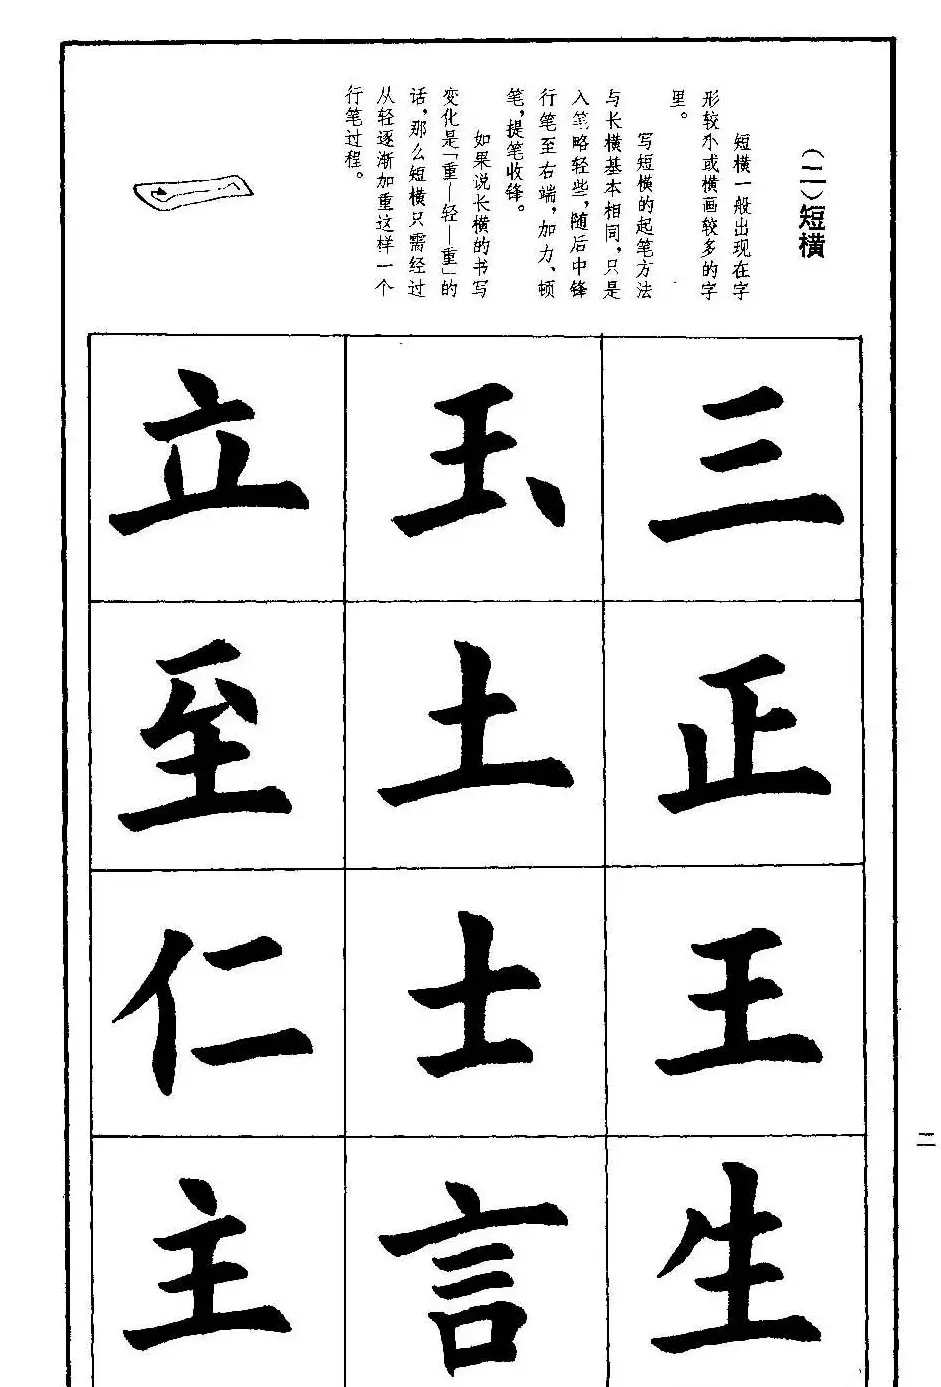 （二）短横
短横一般出现在字
形较小或横画较多的字
里。
写短横的起笔方法
与长横基本相同，只是
入笔略轻些，随后中锋
行笔至右端，加力、顿
笔，提笔收锋。
如果说长横的书写
变化是「重—轻—重」的
话，那么短横只需经过
从轻逐渐加重这样一个
行笔过程。
三
正
王
生
玉
土
士
言
立
至
仁
主
二